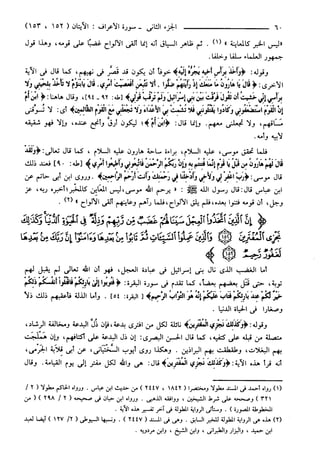 ٦٠ الجزء الثاني - سورة الأعراف: الآيتان (١٥٢ ، ١٥٣)
«ليس الخبر كالمعاينة» (١). ثم ظاهر السياق أنه إنما ألقى الألواح غضبًا على قومه، وهذا قول
جمهور العلماء سلفا وخلفا.
وقوله: ﴿وَأَخَذَ بِرَأْسِ أَخِيهِ يَجُرُّهُ إِلَيْهِ﴾ خوفًا أن يكون قد قصَّر في نهيهم، كما قال في الآية
الأخرى: ﴿قَالَ يَا هَارُونُ مَا مَنَعَكَ إِذْ رَأَيْتَهُمْ ضَلُّوا . أَلَّا تَتَّبِعَنِ أَفَعَصَيْتَ أَمْرِي . قَالَ يَا ابْنَ أُمَّ لَا تَأْخُذْ بِلِحْيَتِي وَلَا
بِرَأْسِي إِنِّي خَشِيتُ أَنْ تَقُولَ فَرَّقْتَ بَيْنَ بَنِي إِسْرَائِيلَ وَلَمْ تَرْقُبْ قَوْلِي﴾ [طه: ٩٢ ـ ٩٤]، وقال هاهنا: ﴿ابْنَ أُمَّ
إِنَّ الْقَوْمَ اسْتَضْعَفُونِي وَكَادُوا يَقْتُلُونَنِي فَلَا تُشْمِتْ بِيَ الْأَعْدَاءَ وَلَا تَجْعَلْنِي مَعَ الْقَوْمِ الظَّالِمِينَ﴾ أي: لا تَسُقْني
مَسَاقهم، ولا تجعلني معهم. وإنما قال: ﴿ابْنَ أُمَّ﴾؛ ليكون أرق وأنجع عنده، وإلا فهو شقيقه
لأبيه وأمه.
فلما تحقق موسى، عليه السلام، براءة ساحة هارون عليه السلام، كما قال تعالى: ﴿وَلَقَدْ
قَالَ لَهُمْ هَارُونُ مِنْ قَبْلُ يَا قَوْمِ إِنَّمَا فُتِنْتُمْ بِهِ وَإِنَّ رَبَّكُمُ الرَّحْمَنُ فَاتَّبِعُونِي وَأَطِيعُوا أَمْرِي﴾ [طه: ٩٠] فعند ذلك
قال موسى: ﴿رَبِّ اغْفِرْ لِي وَلِأَخِي وَأَدْخِلْنَا فِي رَحْمَتِكَ وَأَنْتَ أَرْحَمُ الرَّاحِمِينَ﴾. وروى ابن أبي حاتم عن
ابن عباس قال: قال رسول الله ﷺ : «يرحم الله موسى، ليس المعاين كالمخبر؛ أخبره ربه، عز
وجل، أن قومه فتنوا بعده، فلم يلق الألواح، فلما رآهم وعاينهم ألقى الألواح» (٢) .
﴿إِنَّ الَّذِينَ اتَّخَذُوا الْعِجْلَ سَيَنَالُهُمْ غَضَبٌ مِنْ رَبِّهِمْ وَذِلَّةٌ فِي الْحَيَاةِ الدُّنْيَا وَكَذَلِكَ
نَجْزِي الْمُفْتَرِينَ (١٥٢) وَالَّذِينَ عَمِلُوا السَّيِّئَاتِ ثُمَّ تَابُوا مِنْ بَعْدِهَا وَآمَنُوا إِنَّ رَبَّكَ مِنْ بَعْدِهَا
لَغَفُورٌ رَحِيمٌ (١٥٣)﴾
أما الغضب الذي نال بني إسرائيل في عبادة العجل، فهو أن الله تعالى لم يقبل لهم
توبة، حتى قَتل بعضهم بعضا، كما تقدم في سورة البقرة: ﴿فَتُوبُوا إِلَى بَارِئِكُمْ فَاقْتُلُوا أَنْفُسَكُمْ ذَلِكُمْ
خَيْرٌ لَكُمْ عِنْدَ بَارِئِكُمْ فَتَابَ عَلَيْكُمْ إِنَّهُ هُوَ التَّوَّابُ الرَّحِيمُ﴾ [البقرة: ٥٤]. وأما الذلة فأعقبهم ذلك ذلاً
وصغارا في الحياة الدنيا .
وقوله: ﴿وَكَذَلِكَ نَجْزِي الْمُفْتَرِينَ﴾ نائلة لكل من افترى بدعة، فإن ذُل البدعة ومخالفة الرشاد،
متصلة من قلبه على كتفيه، كما قال الحسن البصري: إن ذل البدعة على أكتافهم، وإن هَمْلَجَت
بهم البغلات، وطقطقت بهم البراذين . وهكذا روى أيوب السَّخْتَيَاني، عن أبي قِلابة الجَرْمي،
أنه قرأ هذه الآية: ﴿وَكَذَلِكَ نَجْزِي الْمُفْتَرِينَ﴾ قال: هي والله لكل مفتر إلى يوم القيامة. وقال
(١) رواه أحمد في المسند مطولا ومختصرا (١٨٤٢ ، ٢٤٤٧) من حديث ابن عباس . ورواه الحاكم مطولا (٢ /
٣٢١) وصححه على شرط الشيخين ، ووافقه الذهبي . ورواه ابن حبان في صحيحه (٢ / ٢٩٨) ( من
المخطوطة المصورة ) . وستأتي الرواية المطولة في آخر تفسير هذه الآية .
(٢) هذه هي الرواية المطولة للخبر السابق . وهي في المسند (٢٤٤٧) . ونسبها السيوطي (٢ / ١٢٧) أيضا لعبد
ابن حميد ، والبزار والطبراني ، وابن الشيخ ، وابن مردويه .